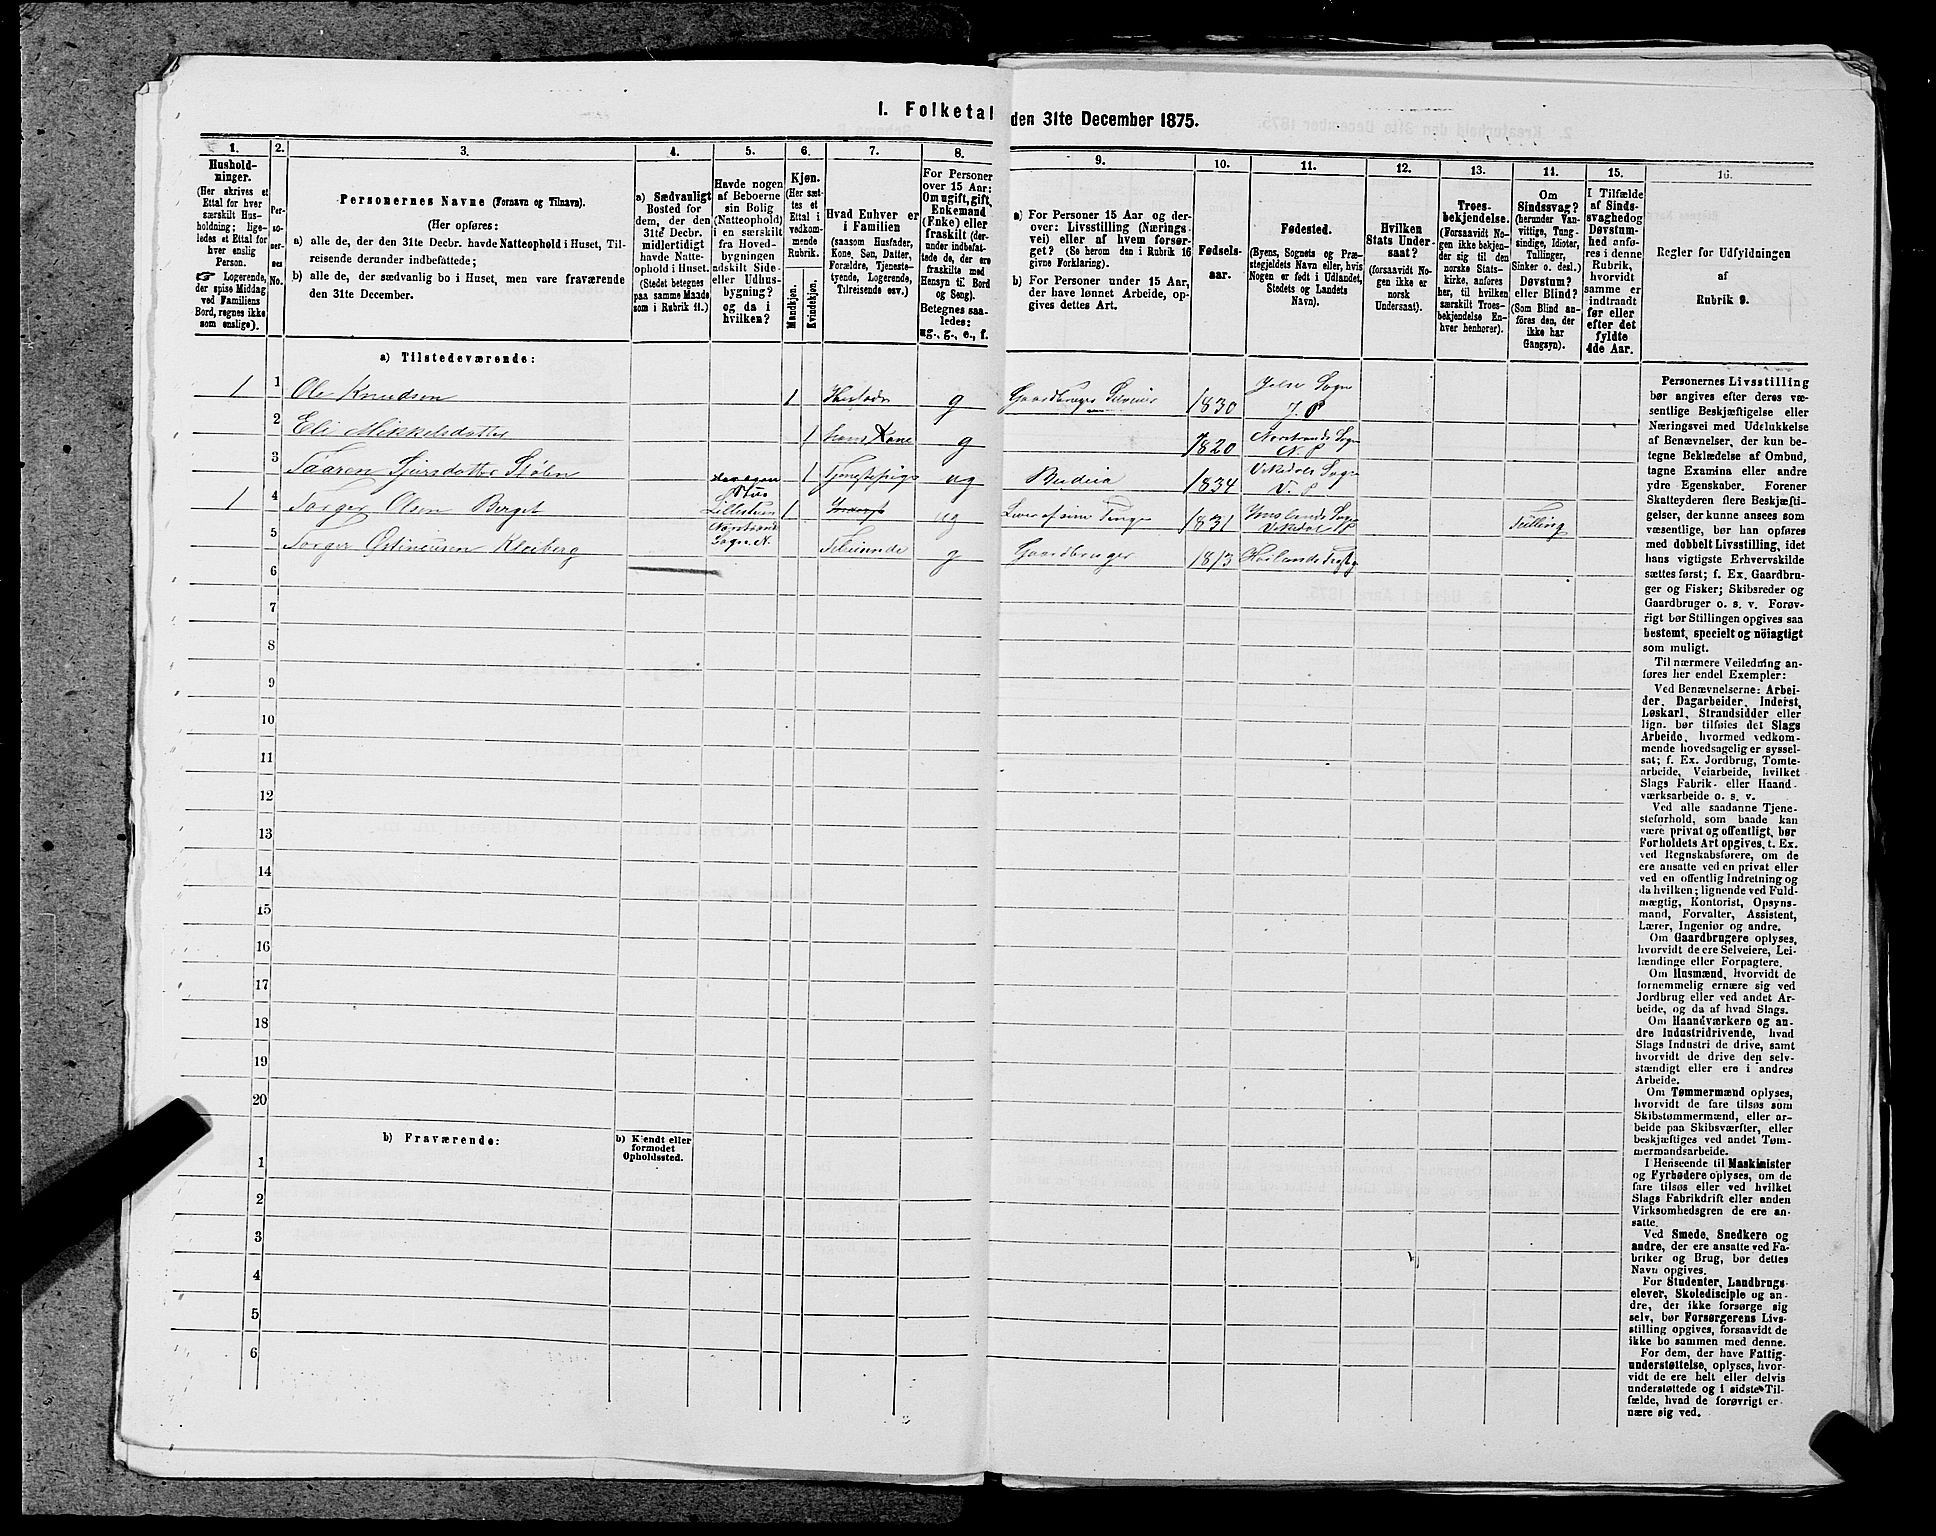 1. Folketal den 31te December 1875.
1.
Hushold-
ninger.
(Her skrives et
Ettal for hver
særskilt Hus-
holdning; lige-
ledes et Ettal for
hver enslig
Person.
☞ Logerende,
der spise Middag
ved Familiens
Bord, regnes ikke
som enslige).
2.
Per-
so-
ner-
nes
No.
3.
Personernes Navne (Fornavn og Tilnavn).
(Her opføres:
a) alle de, der den 31te Decbr. havde Natteophold i Huset, Til-
reisende derunder indbefattede;
b) alle de, der sædvanlig bo i Huset, men vare fraværende
den 31te December.
4.
a) Sædvanligt
Bosted for
dem, der den
31te Decbr.
midlertidigt
havde Natte-
ophold i Huset.
(Stedet betegnes
paa samme Maade
som i Rubrik 11.)
5.
Havde nogen
af Beboerne
sin Bolig
(Natteophold)
i en særskilt
fra Hoved-
bygningen
adskilt Side-
eller Udhus-
bygning?
og da i
hvilken?
6.
Kjøn.
(Her sæt-
tes et
Ettal i
vedkom-
mende
Rubrik.
Mandkjøn.
Kvindekjøn.
7.
Hvad Enhver er
i Familien
(saasom Husfader,
Kone, Søn, Datter,
Forældre, Tjeneste-
tyende, Logerende,
Tilreisende osv.)
8.
For Personer
over 15 Aar:
Om ugift, gift,
Enkemand
(Enke) eller
fraskilt (der-
under indbefat-
tede de, der ere
fraskilte med
Hensyn til Bord
og Seng).
Betegnes saa-
ledes:
ug., g., e., f.
9.
a) For Personer 15 Aar og der-
over: Livsstilling (Nærings-
vei) eller af hvem forsør-
get? (Se herom den i Rubrik 16
givne Forklaring).
b) For Personer under 15 Aar,
der have lønnet Arbeide, op-
gives dettes Art.
10.
Fødsels-
aar.
11.
Fødested.
(Byens, Sognets og Præ-
stegjeldets Navn eller, hvis
Nogen er født i Udlandet,
Stedets og Landets
Navn).
12.
Hvilken
Stats Under-
saat?
(forsaavidt No-
gen ikke er
norsk
Undersaat).
13.
Troes-
bekjendelse.
(Forsaavidt No-
gen ikke bekjen-
der sig til den
norske Stats-
kirke, anføres
her, til hvilken
særskilt Troes-
bekjendelse En-
hver henhører).
14.
Om
Sindssvag?
(herunder Van-
vittige, Tung-
sindige, Idioter,
Tullinger,
Sinker o. desl.)
Døvstum?
eller Blind?
(Som Blind an-
føres den, der
ikke har
Gangsyn).
15.
I Tilfælde
af Sinds-
svaghed og
Døvstum-
hed anfø-
res i denne
Rubrik,
hvorvidt
samme er
indtraadt
før eller
efter det
fyldte
4de Aar.
16.
Regler for Udfyldningen
af
Rubrik 9.
a) Tilstedeværende:
1 1 Ole Knudsen 1 Husfader g Gaardbruger Selveier 1830 Jelse Sogn J. P
2 Eli Mikkelsdatter 1 hans Kone g 1820 Nerstrands Sogn N. P
3 Taaren Sjursdatter Støbn 1 Tjenestepige ug Budeia 1834 Vikedals Sogn V. P
1 4 Torger Olsen Berget Lillestuen 1 ug Lever af sine Penge 1831 Imslands Sogn Vikedal P Tulling
5 Torger Østineusen g Gaardbruger 1813
6
7
8
9
10
11
12
13
14
15
16
17
18
19
20
b) Fraværende:
b) Kjendt eller
formodet
Opholdssted.
1
2
3
4
5
6
Personernes Livsstilling
bør angives efter deres væ-
sentlige Beskjæftigelse eller
Næringsvei med Udelukkelse
af Benævnelser, der kun be-
tegne Beklædelse af Ombud,
tagne Examina eller andre
ydre Egenskaber. Forener
Skatteyderen flere Beskjæfti-
gelser, der kunne ansees som
væsentlige, bør han opføres
med dobbelt Livsstilling, idet
hans vigtigste Erhvervskilde
sættes først; f. Ex. Gaardbru-
ger og Fisker; Skibsreder og
Gaardbruger o. s. v. Forøv-
rigt bør Stillingen opgives saa
bestemt, specielt og nöiagtigt
som muligt.
Til nærmere Veiledning an-
føres her endel Exempler:
Ved Benævnelserne: Arbei-
der, Dagarbeider, Inderst,
Løskarl, Strandsidder eller
lign. bør tilføies det Slags
Arbeide, hvormed vedkom-
mende hovedsagelig er syssel-
sat; f. Ex. Jordbrug, Tomte-
arbeide, Veiarbeide, hvilket
Slags Fabrik- eller Haand
værksarbeide o. s. v.
Ved alle saadanne Tjene-
steforhold, som baade kan
være privat og offentligt, bør
Forholdets Art opgives, t. Ex.
ved Regnskabsførere, om de
ere ansatte ved en privat eller
ved en offentlig Indretning og
da hvilken; lignende ved Fuld-
mægtig, Kontorist, Opsyns-
mand, Forvalter, Assistent,
Lærer, Ingeniør og andre.
Om Gaardbrugere oplyses,
hvorvidt de ere Selveiere, Lei-
lændinge eller Forpagtere.
Om Husmænd, hvorvidt de
fornemmelig ernære sig ved
Jordbrug eller ved andet Ar-
beide, og da af hvad Slags.
Om Haandværkere og an-
dre Industridrivende, hvad
Slags Industri de drive, samt
hvorvidt de drive den selv-
stændigt eller ere i andres
Arbeide.
Om Tømmermænd oplyses,
hvorvidt de fare tilsøs som
Skibstømmermænd, eller ar-
beide paa Skibsværfter, eller
beskjæftiges ved andet Tøm-
mermandsarbeide.
I Henseende til Maskinister
og Fyrbødere oplyses, om de
fare tilsøs eller ved hvilket
Slags Fabrikdrift eller anden
Virksomhedsgren de ere an-
satte.
Ved Smede, Snedkere og
andre, der ere ansatte ved Fa-
briker og Brug, bør dettes
Navn opgives.
For Studenter, Landbrugs-
elever, Skoledisciple og an-
dre, der ikke forsørge sig
selv, bør Forsørgerens Livs-
stilling opgives, forsaavidt de
ikke bo sammen med denne.
For dem, der have Fattig-
understøttelse, oplyses, hvor-
vidt de ere helt eller delvis
understøttede og i sidste Til-
fælde, hvad de forøvrigt er-
nære sig ved.